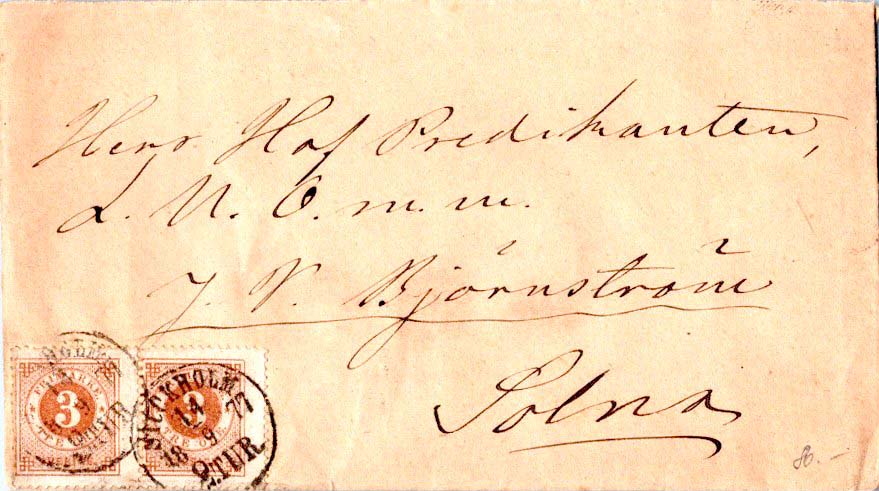 Herr Hof Predikanten,
L. N. O. m. m.
J. P. Björnström
Solna
3
STOCKHOLM
14
18 9 77
9.TUR.
86.–